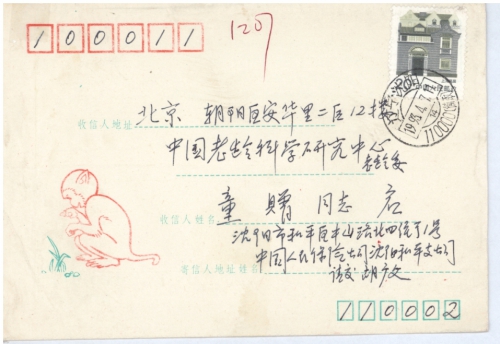 100011
1207
北京 朝阳区安华里二区12楼
收信人地址
中国老龄科学研究中心
老龄委
童 赠 同志 启
收信人姓名
沈阳市和平区中山路北四经 1号
中国人民保险公司沈阳和平支公司
寄信人地址姓名
110002